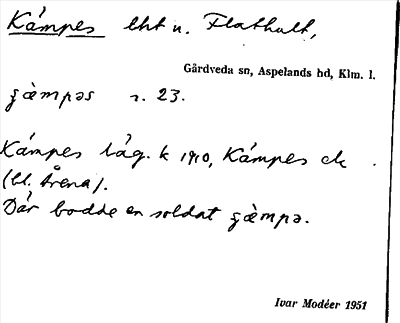 Kámpes lht u. Flathult,
Gårdveda sn, Aspelands hd, Klm. l.
gæ̀mpəs r. 23.
Kámpes låg. k 1910, Kámpes ek
(bl. Årena).
Där bodde en soldat gæ̀mpə.
Ivar Modéer 1951